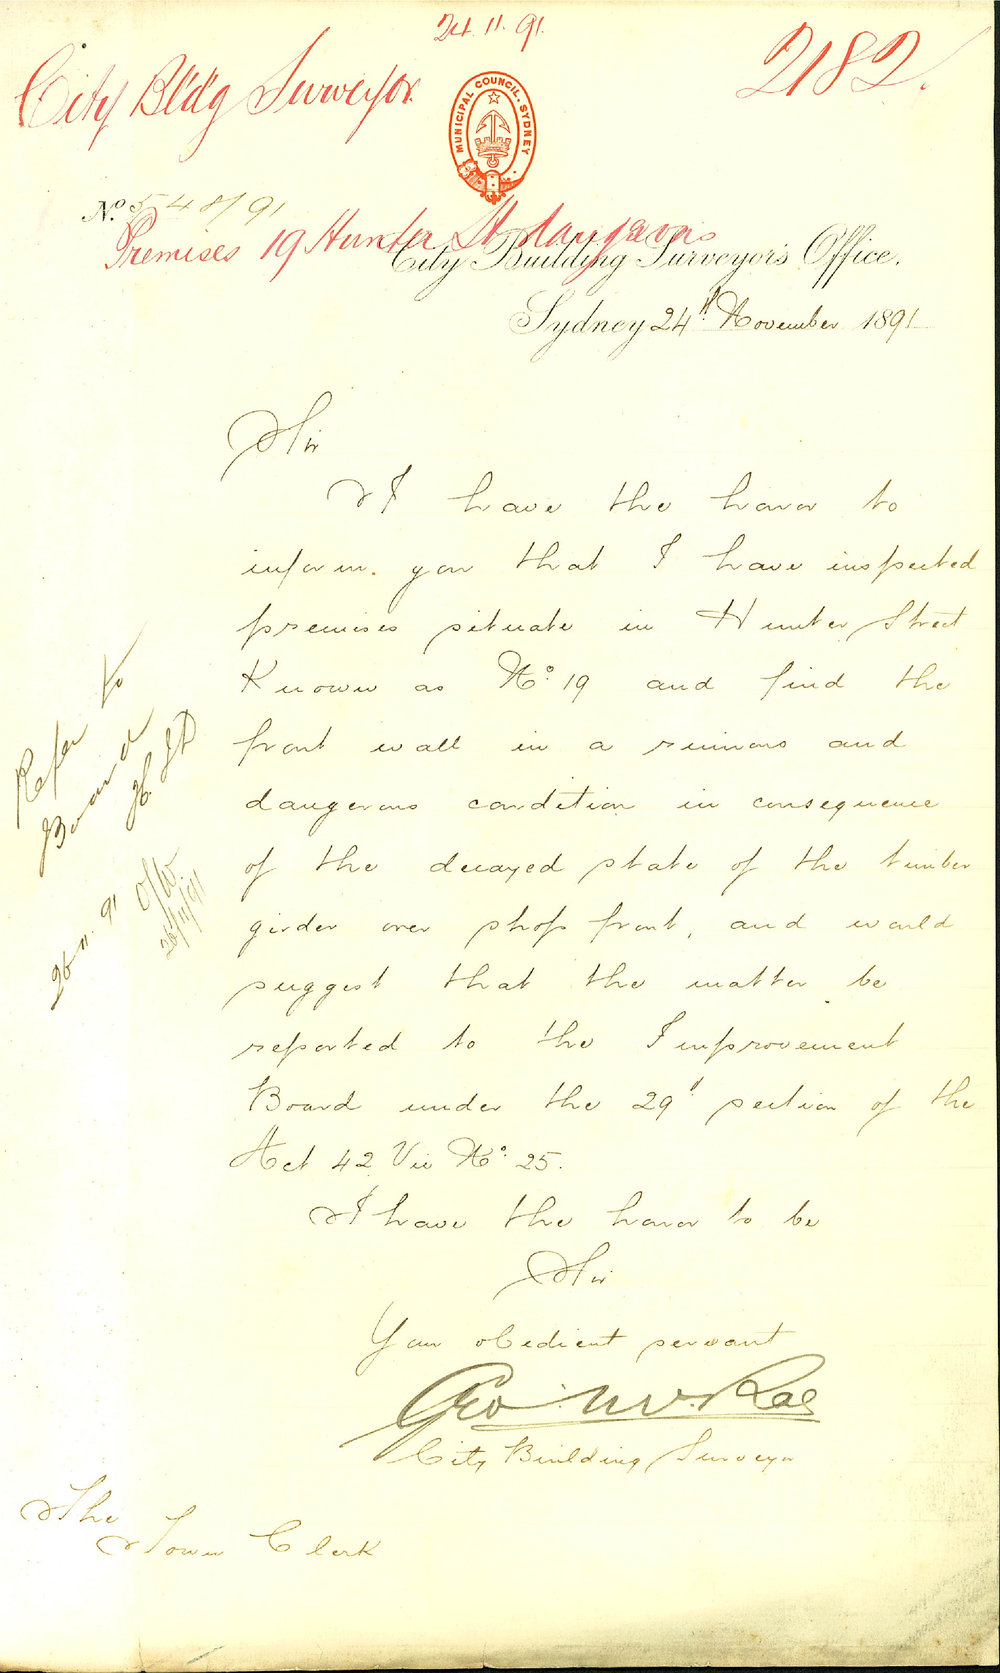 24.11.91.
City Bldg Surveyor.
2182.
MUNICIPAL COUNCIL. SYDNEY
No. 548/91
Premises 19 Hunter St dangerous
City Building Surveyor's Office.
Sydney 24th November 1891
Sir
I have the honor to
inform. you that I have inspected
premises situate in Hunter Street
Known as No. 19 and find the
front wall in a ruinous and
dangerous condition in consequence
of the decayed state of the timber
girder over shop front, and would
suggest that the matter be
reported to the Improvement
Board under the 29th section of the
Act 42 Vic No. 25.
I have the honor to be
Sir
Your obedient servant
Geo. McRae
City Building Surveyor
The
Town Clerk
Refer to
Board
26.11.91
26/11/91